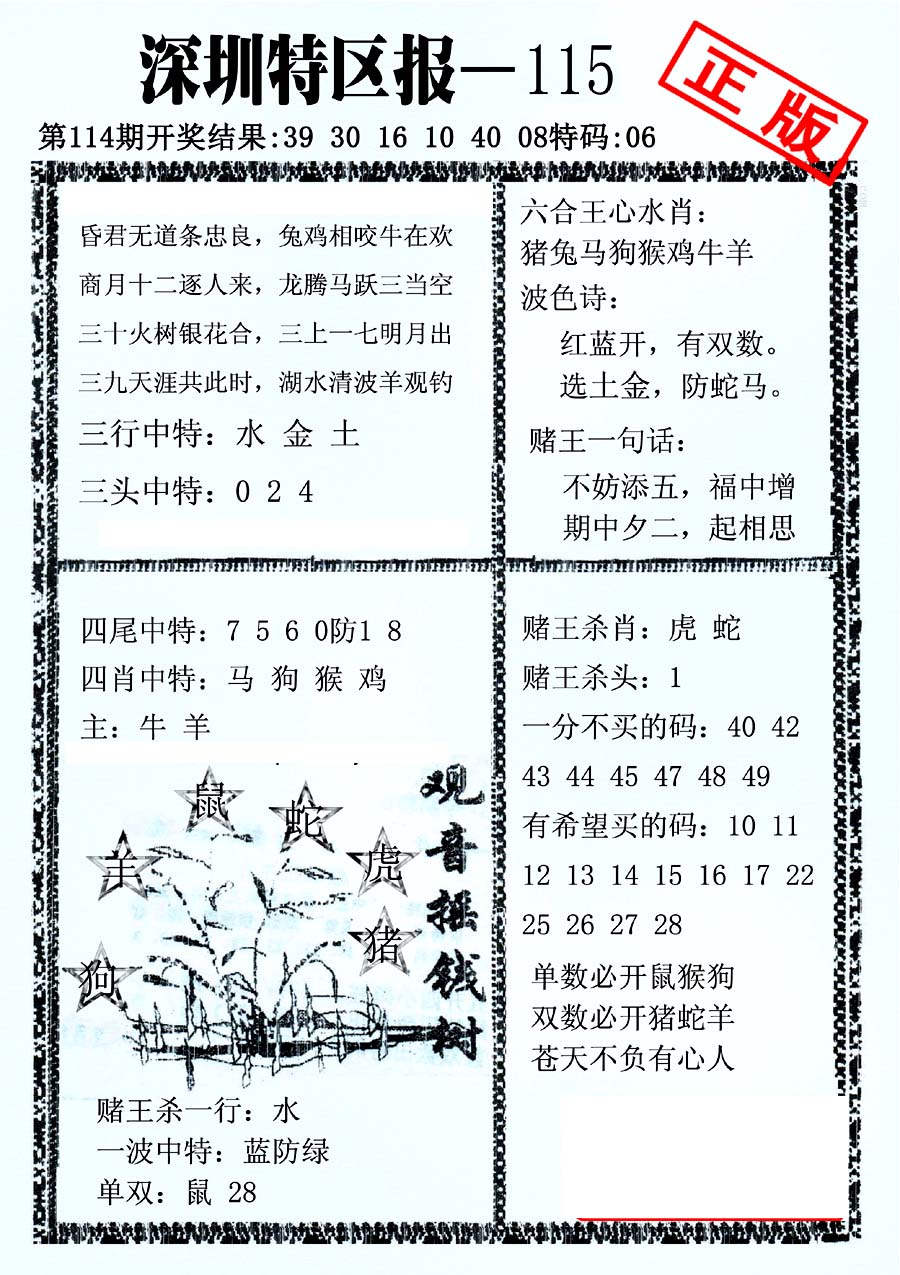 深圳特区报—115
正版
第114期开奖结果:39 30 16 10 40 08特码:06
昏君无道条忠良，兔鸡相咬牛在欢
商月十二逐人来，龙腾马跃三当空
三十火树银花合，三上一七明月出
三九天涯共此时，湖水清波羊观钓
三行中特：水 金 土
三头中特：0 2 4
六合王心水肖：
猪兔马狗猴鸡牛羊
波色诗：
红蓝开，有双数。
选土金，防蛇马。
赌王一句话：
不妨添五，福中增
期中夕二，起相思
四尾中特：7 5 6 0防1 8
四肖中特：马 狗 猴 鸡
主：牛 羊
鼠
蛇
羊
虎
猪
狗
观音摇钱树
赌王杀一行：水
一波中特：蓝防绿
单双：鼠 28
赌王杀肖：虎 蛇
赌王杀头：1
一分不买的码：40 42
43 44 45 47 48 49
有希望买的码：10 11
12 13 14 15 16 17 22
25 26 27 28
单数必开鼠猴狗
双数必开猪蛇羊
苍天不负有心人